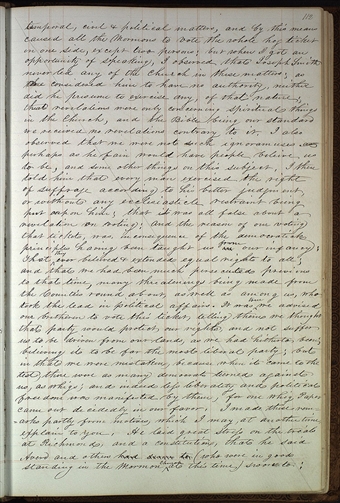 temporal, civil & political matters, and by this means
caused all the Mormons to vote the whole hog ticket
on one side, except two persons; but when I got an
opportunity of speaking, I observed that Joseph Smith
never led any of the Church in these matters; as
considered him to have no authority, neither
did he presume to exercise any, of that nature,
that revelations were only concerning spiritual things
in the Church, and the Bible being our standard
we received no revelations contrary to it. I also
observed that we were not such ignoramuses,
perhaps as he fain would have people believe us
to be, and some other things on this subject. I then
told him that every man exercised the right
of suffrage according to his better judgment,
or without any ecclesiastical restraint being
put upon him; that it was all false about a
revelation on voting; and the reason of our voting
that ticket, was in consequence of the democratic
principles having been taught us from our infancy;
That, they ever believed & extended equal rights to all;
and that we had been much persecuted previous
to that time, many threatenings being made from
the Counties round about, as well as among us, who
took the lead in political affairs. It was, we advised
our brethren to vote this ticket, telling them we thought
that party would protect our rights, and not suffer
us to be driven from our lands, as we had hitherto been;
believing it to be far the most liberal party; but
in that we were mistaken, because, when it came to the
test, there were as many democrats turned against
us, as whigs; and indeed less liberality and political
freedom was manifested by them; for one whig Paper
came out decidedly in our favor. I made these remarks
partly from motives, which I may at another time
explain to you. He laid great stress on the trials
at Richmond, and a constitution, that he said
Avard and others had (who were in good
standing in the Mormon Church at this time) sworn to;